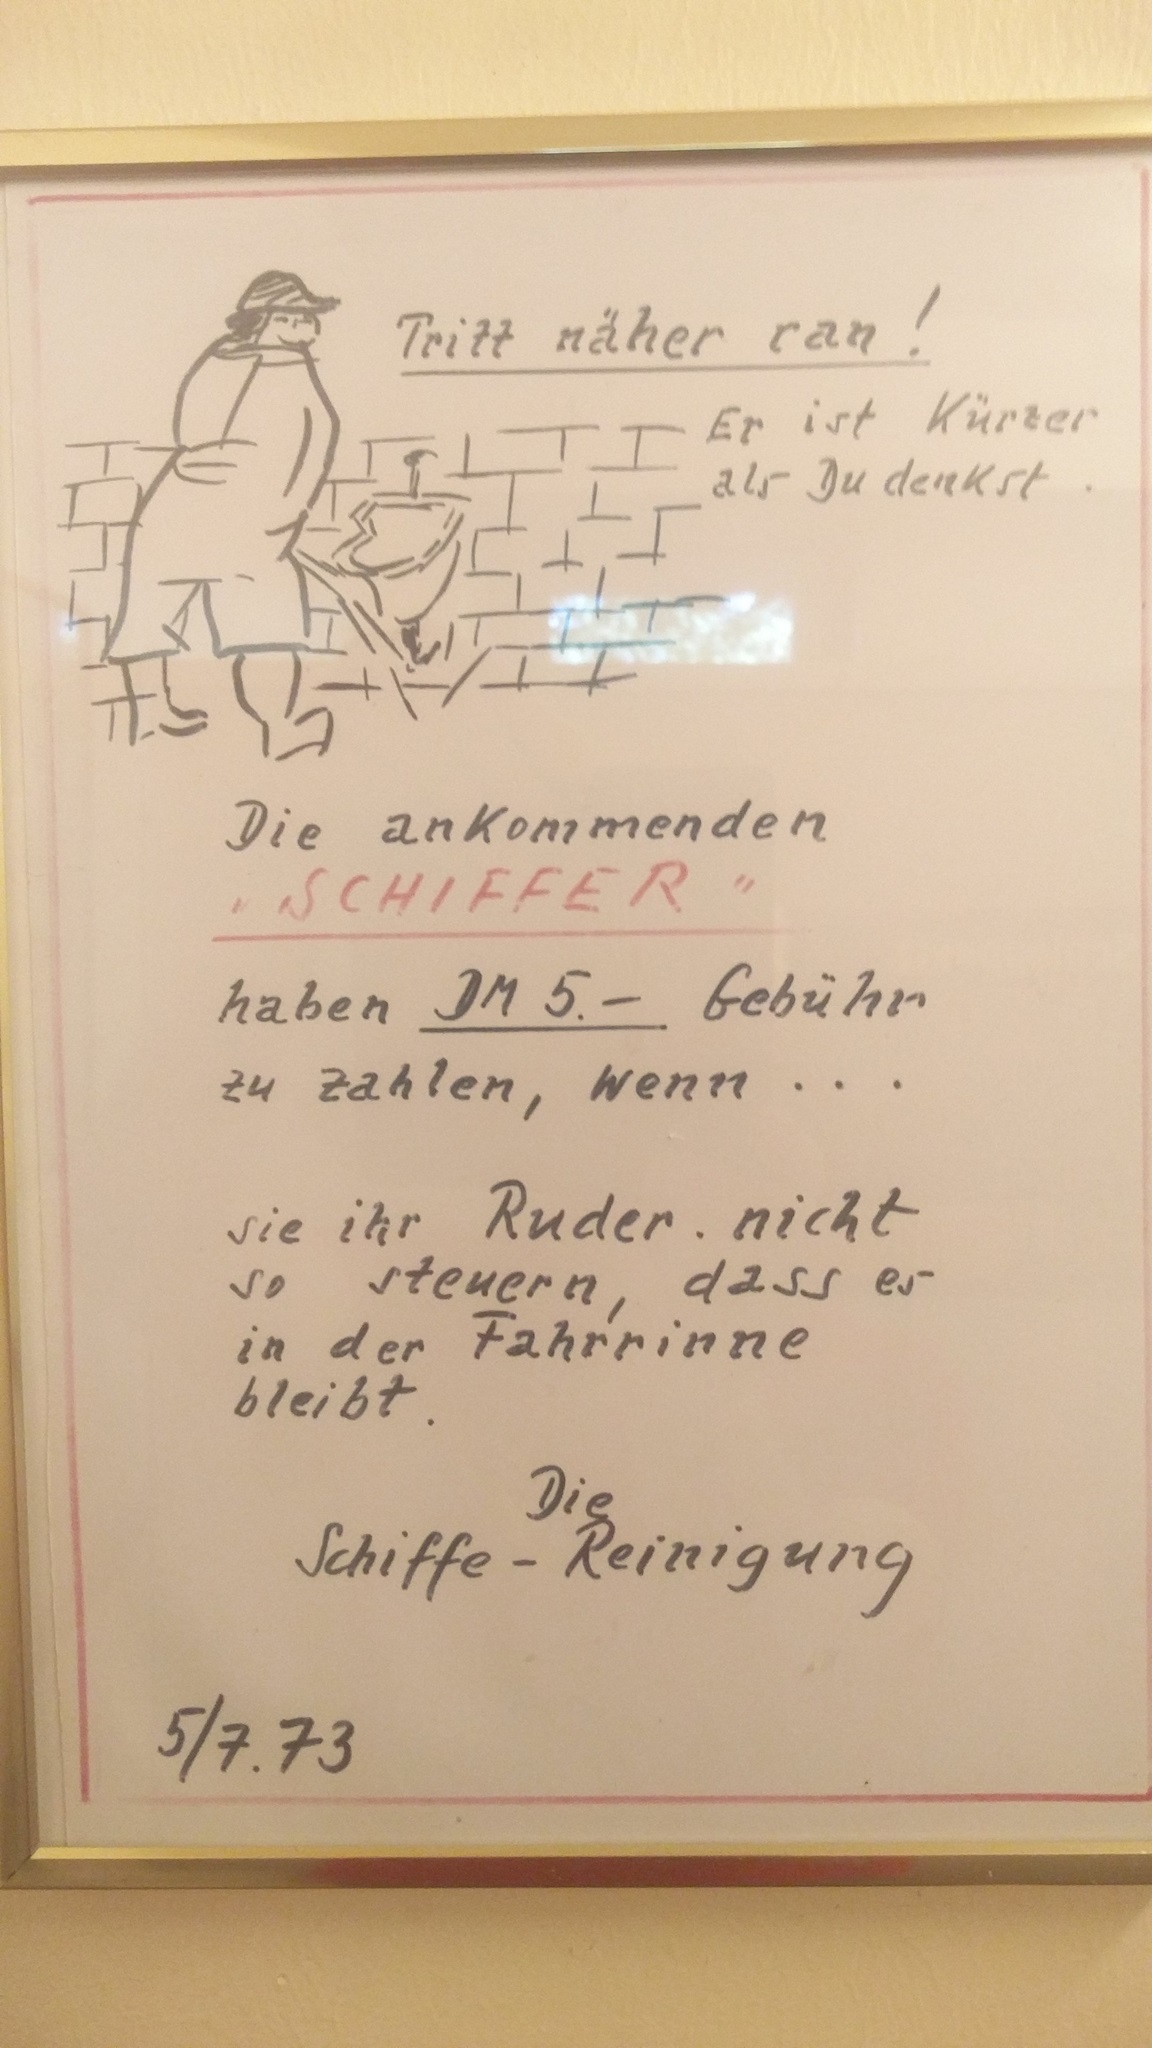 Tritt näher ran!
Er ist Kürzer
als Du denkst.
Die anKommenden
"SCHIFFER"
haben DM 5.- Gebühr
zu zahlen, wenn ...
sie ihr Ruder. nicht
so steuern, dass es
in der Fahrrinne
bleibt.
Die
Schiffe-Reinigung
5/7.73